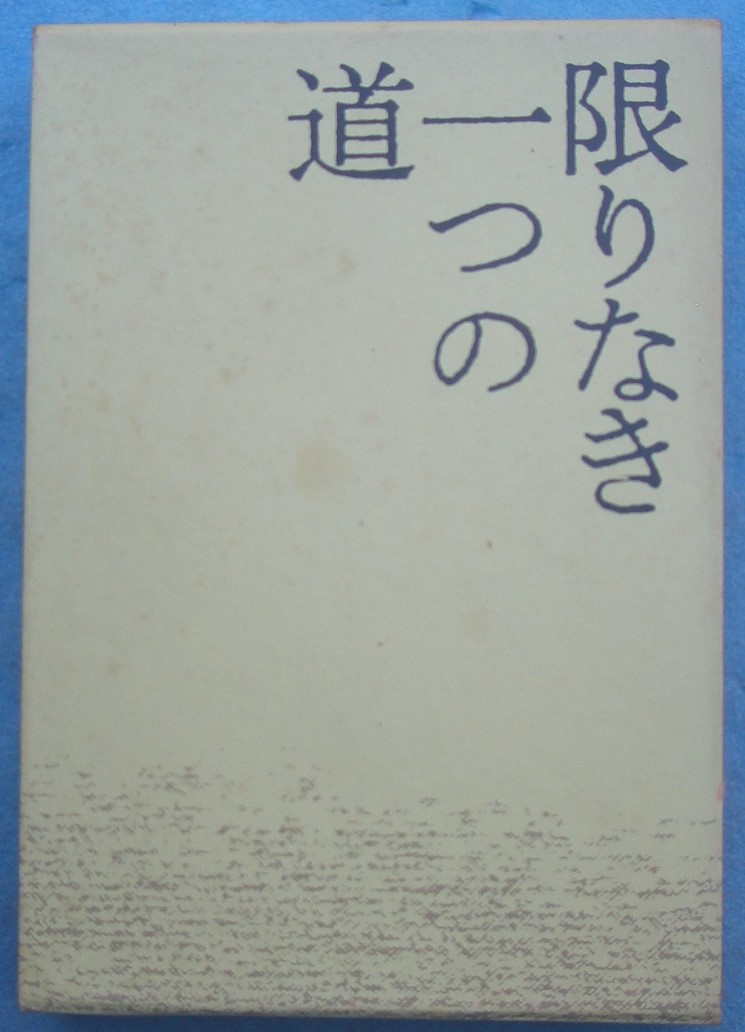 限りなき
一つの
道